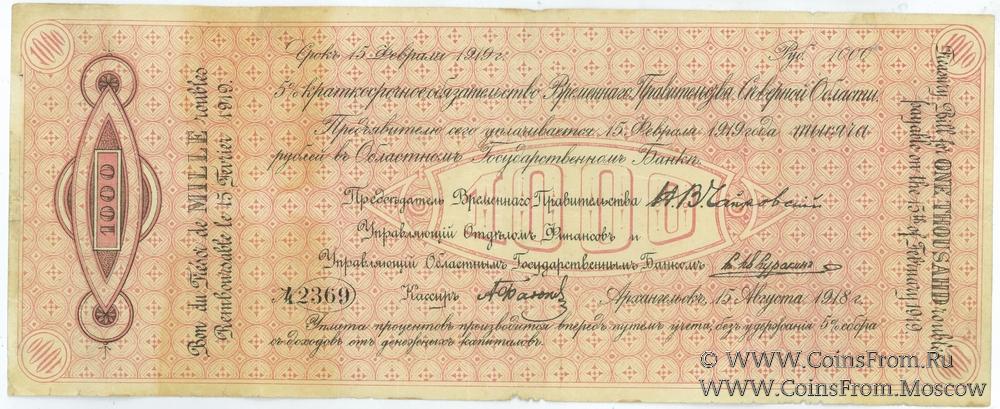 Срокъ 15 Февраля 1919 г. Руб. 1000
5% краткосрочное обязательство Временнаго Правительства Сѣверной Области.
Предъявителю сего уплачивается 15 Февраля 1919 года тысяча
рублей въ Областномъ Государственномъ Банкѣ.
1000
Предсѣдатель Временнаго Правительства Н.В. Чайковскій
Управляющій Отдѣломъ Финансовъ и
Управляющій Областнымъ Государственнымъ Банкомъ
№ 2369 Кассиръ Архангельскъ, 15 Августа 1918 г.
Уплата процентовъ производится впередъ путемъ учета, безъ удержанія 5% сбора
съ доходовъ отъ денежныхъ капиталовъ.
1000
1000
1000
1000
1000
Bon du Trésor de MILLE roubles
Remboursable le 15 Février 1919.
Treasury Bill for ONE THOUSAND roubles
payable on the 15th of February 1919
© WWW.CoinsFrom.Ru
WWW.CoinsFrom.Moscow